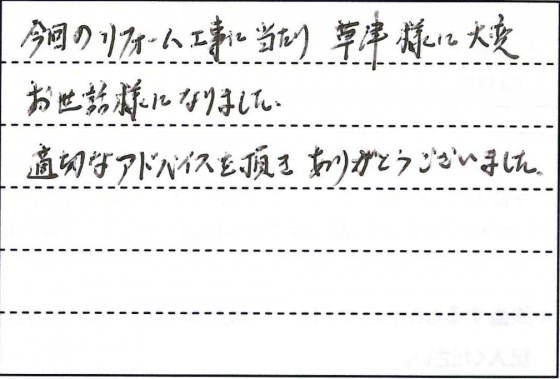 今回のリフォーム工事に当たり 草津様に大変
お世話様になりました。
適切なアドバイスを頂き ありがとうございました。